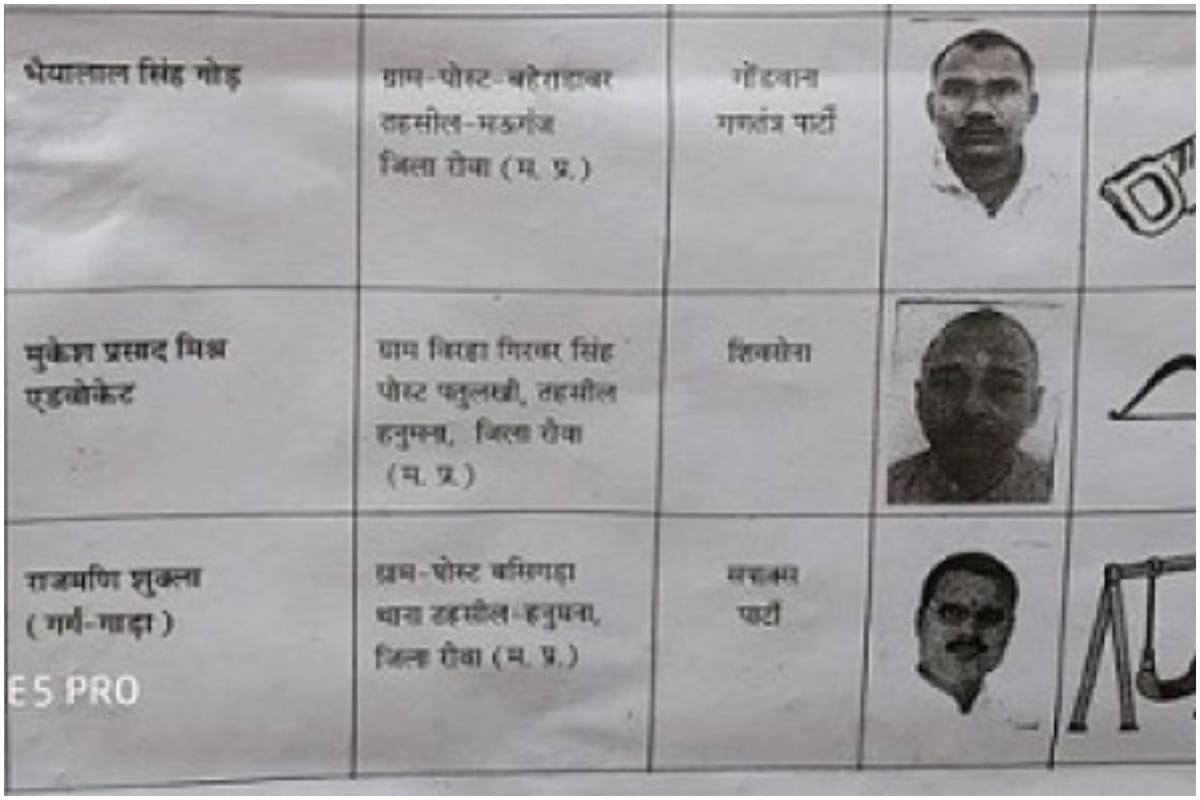 भैयालाल सिंह गोड़
ग्राम-पोस्ट-बहेराडाबर
तहसील-मऊगंज
जिला रीवा (म. प्र.)
गोंडवाना
गणतंत्र पार्टी
मुकेश प्रसाद मिश्र
एडवोकेट
ग्राम बिरहा गिरवर सिंह
पोस्ट पतुलखी, तहसील
हनुमना, जिला रीवा
(म. प्र.)
शिवसेना
राजमणि शुक्ला
(गर्ग-गाड़ा)
ग्राम-पोस्ट
थाना तहसील-हनुमना,
जिला रीवा (म. प्र.)
सपाक्स
पार्टी
E5 PRO